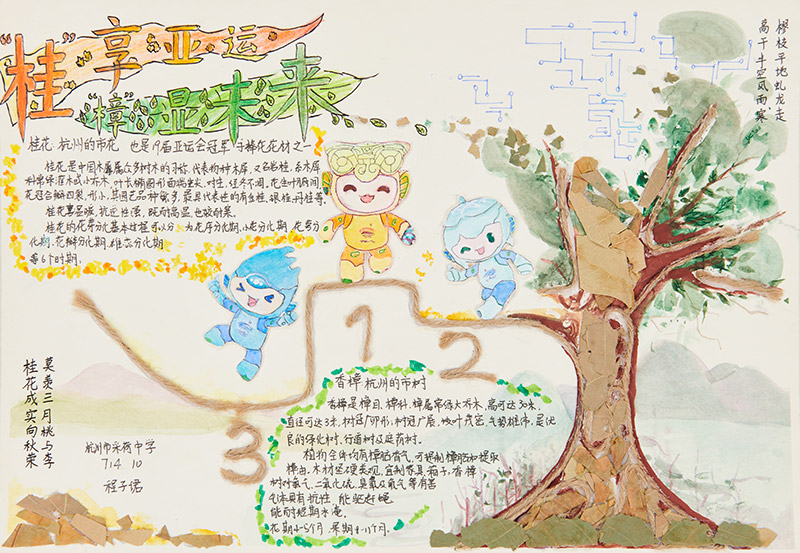 “桂”享亚运
“樟”显未来
桂花 杭州的市花 也是19届亚运会冠军手捧花花材之一
桂花是中国木犀属众多树木的习称,代表物种木犀,又名岩桂,系木犀
科常绿灌木或小乔木,叶长椭圆形面端尖,对生,经冬不凋,花生叶腋间,
花冠合瓣四裂,形小,其园艺品种繁多,最具代表性的有金桂、银桂、丹桂等.
桂花喜温暖,抗逆性强,既耐高温,也较耐寒。
桂花的花芽分化基本过程可以分为花序分化期、小花分化期、花萼分
化期、花瓣分化期、雄蕊分化期
等6个时期.
樛枝平地虬龙走
高干半空风雨寒
1
2
3
香樟 杭州的市树
香樟是樟目、樟科、樟属常绿大乔木,高可达30米,
直径可达3米,树冠广卵形,树冠广展,枝叶茂密,气势雄伟,是优
良的绿化树、行道树及庭荫树。
植物全体均有樟脑香气,可提制樟脑和提取
樟油,木材坚硬美观,宜制家具、箱子,香樟
树对氯气、二氧化硫、臭氧及氟气等有害
气体具有抗性,能驱蚊蝇
能耐短期水淹.
花期4-5个月 果期8-11个月.
莫羡三月桃与李
桂花成实向秋荣
杭州市采荷中学
714 10
程子诺